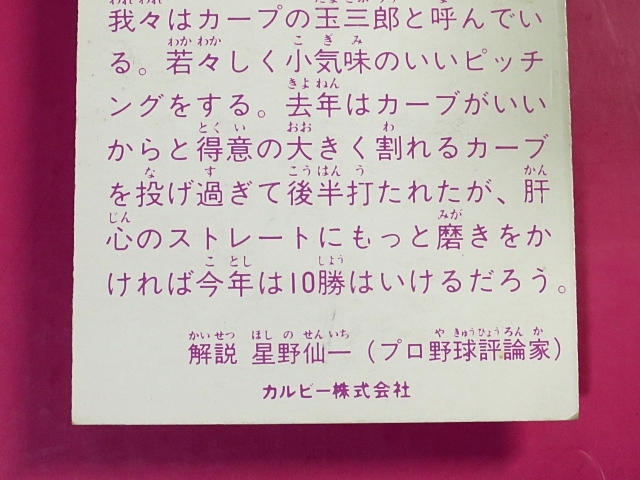 我々はカープの玉三郎と呼んでい
る。若々しく小気味のいいピッチ
ングをする。去年はカーブがいい
からと得意の大きく割れるカーブ
を投げ過ぎて後半打たれたが、肝
心のストレートにもっと磨きをか
ければ今年は10勝はいけるだろう。
解説 星野仙一（プロ野球評論家）
カルビー株式会社